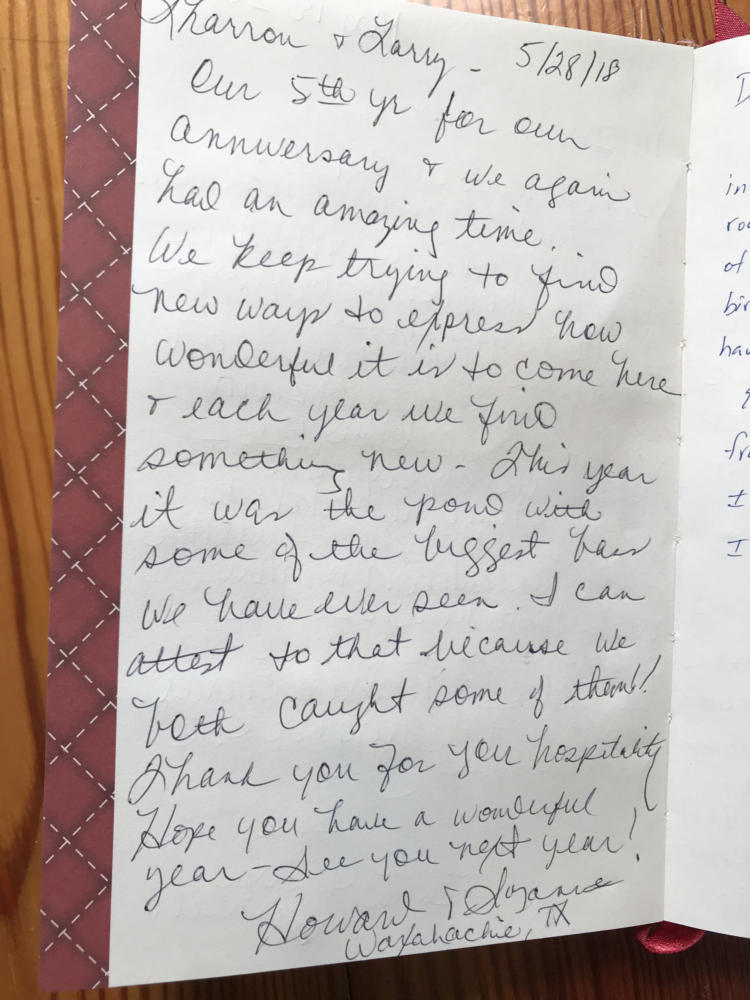 Sharron & Larry - 5/28/18
Our 5th yr for our
anniversary & we again
had an amazing time.
We keep trying to find
new ways to express how
wonderful it is to come here
& each year we find
something new - This year
it was the pond with
some of the biggest bass
we have ever seen. I can
attest to that because we
both caught some of them!!
Thank you for you hospitality
Hope you have a wonderful
year - See you next year!
Howard & Suzanne
Waxahachie, TX
D
in
roo
of
bir
hav
fro
I
I